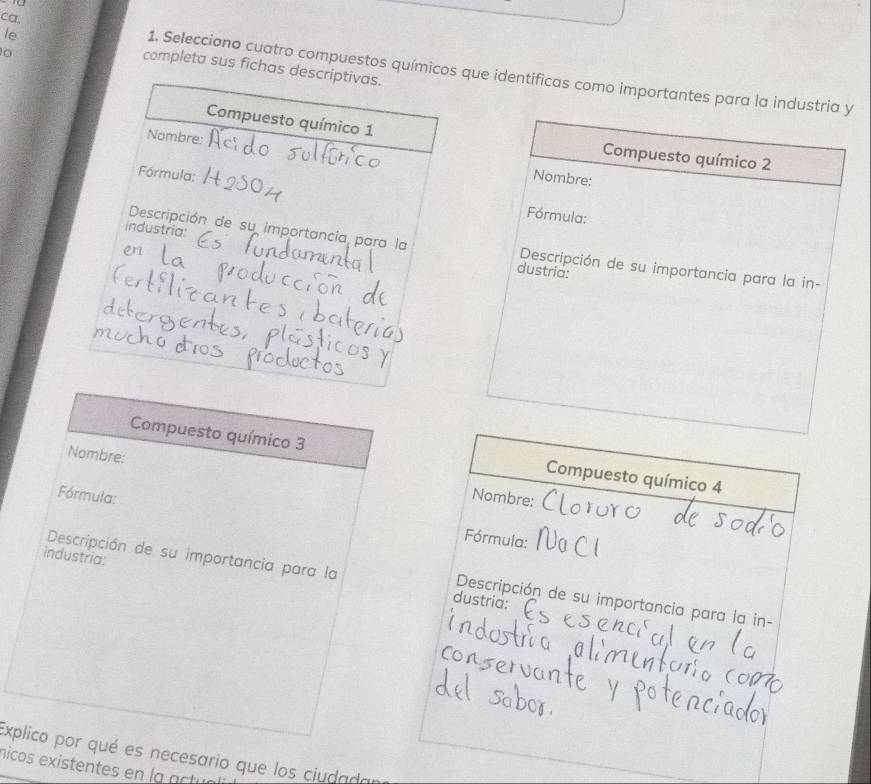 ca.
le
1. Selecciono cuatro compuestos químicos que identificas como importantes para la industria y
completa sus fichas descriptivas.
Compuesto químico 1
Nombre: Acido solfúrico
Fórmula: H2SO4
Descripción de su importancia para la
industria: Es fundamental
en la producción de
fertilizantes, baterias
detergentes, plásticos y
mucho otros productos
Compuesto químico 2
Nombre:
Fórmula:
Descripción de su importancia para la in-
dustria:
Compuesto químico 3
Nombre:
Fórmula:
Descripción de su importancia para la
industria:
Compuesto químico 4
Nombre: Cloruro de sodio
Fórmula: NaCl
Descripción de su importancia para la in-
dustria: Es esencial en la
industria alimentaria como
conservante y potenciador
del sabor.
Explico por qué es necesario que los
nicos existentes en la